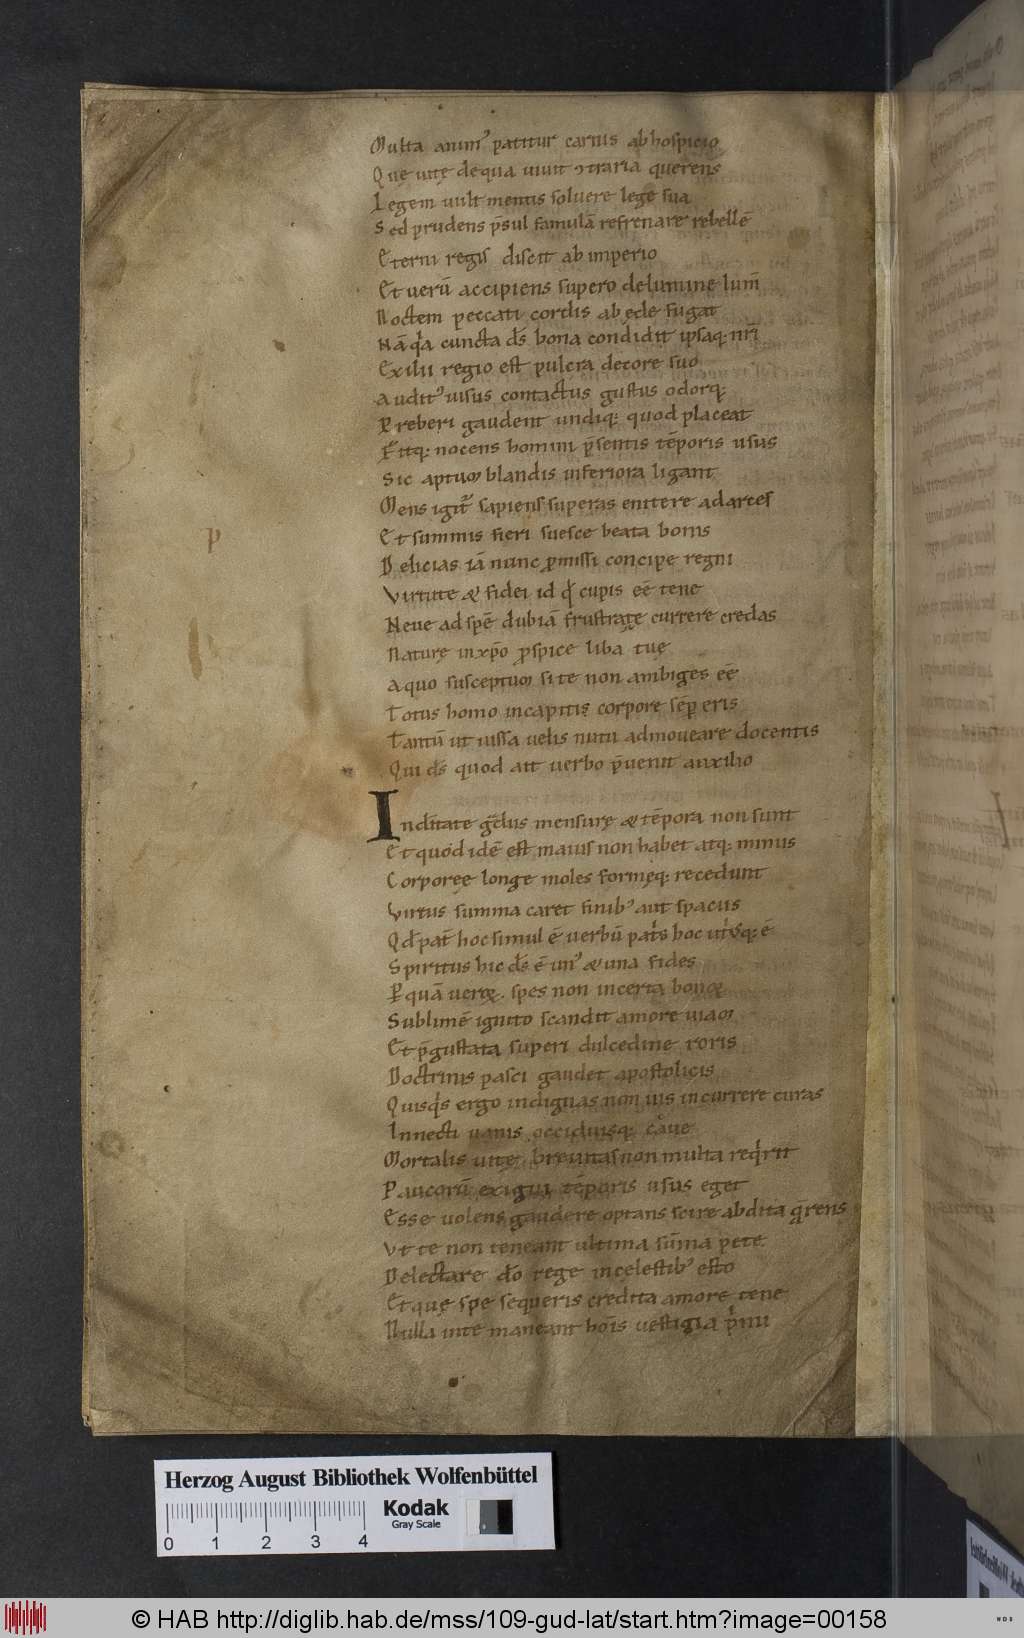 Multa anim᾽ patitur carnis ab hospicio
Quę uitę de qua uiuit ↄtraria querens
Legem uult mentis soluere lege sua
Sed prudens p̄sul famulā refrenare rebellē
Eterni regis discit ab imperio
Et uerū accipiens supero de lumine lum̄
Noctem peccati cordis ab ęde fugat
Nā q̍a cuncta d̄s bona condidit ipsaq; nr̄i
Exilii regio est pulcra decore suo
Audit᾽ uisus contactus gustus odorq;
P̄reberi gaudent undiq; quod placeat
Fitq; nocens homini p̄sentis tēporis usus
Sic aptum blandis inferiora ligant
Mens igit̄ sapiens superas enitere ad arces
Et summis fieri suesce beata bonis
Delicias iā nunc p̄missi concipe regni
Virtute & fidei id q̄d cupis eē tene
Neue ad spē dubiā frustratę currere credas
Naturę in xp̄o p̄spice liba tuę
A quo susceptum si te non ambiges eē
Totus homo in capitis corpore sēp eris
Tantū ut iussa uelis nutu admoueare docentis
Qui d̄s quod ait uerbo p̄uenit auxilio
In deitate gradus mensurę & tēpora non sunt
Et quod idē est maius non habet atq; minus
Corporeę longe moles formęq; recedunt
Virtus summa caret finib᾽ aut spaciis
Qd̄ pat̄ hoc simul ē uerbū pat̄s hoc utriusq; ē
Spiritus hic d̄s ē un᾽ & una fides
P quā uerę spes non incerta bonę
Sublimē ignito scandit amore uiam
Et p̄gustata superi dulcedine roris
Doctrinis pasci gaudet apostolicis
Quisq̍s ergo indignas non uis incurrere curas
Innecti uanis occiduisq; caue
Mortalis uitę breuitas non multa req̍rit
Paucorū exigui tēporis usus eget
Esse uolens gaudere optans scire abdita q̄rens
Vt te non teneant ultima sūma pete
Delectare d̄o rege in celestib᾽ esto
Et quę spe sequeris credita amore tene
Nulla in te maneant hoīs uestigia p̍mi
p
Herzog August Bibliothek Wolfenbüttel
0 1 2 3 4
Kodak
Gray Scale
© HAB http://diglib.hab.de/mss/109-gud-lat/start.htm?image=00158
WDB